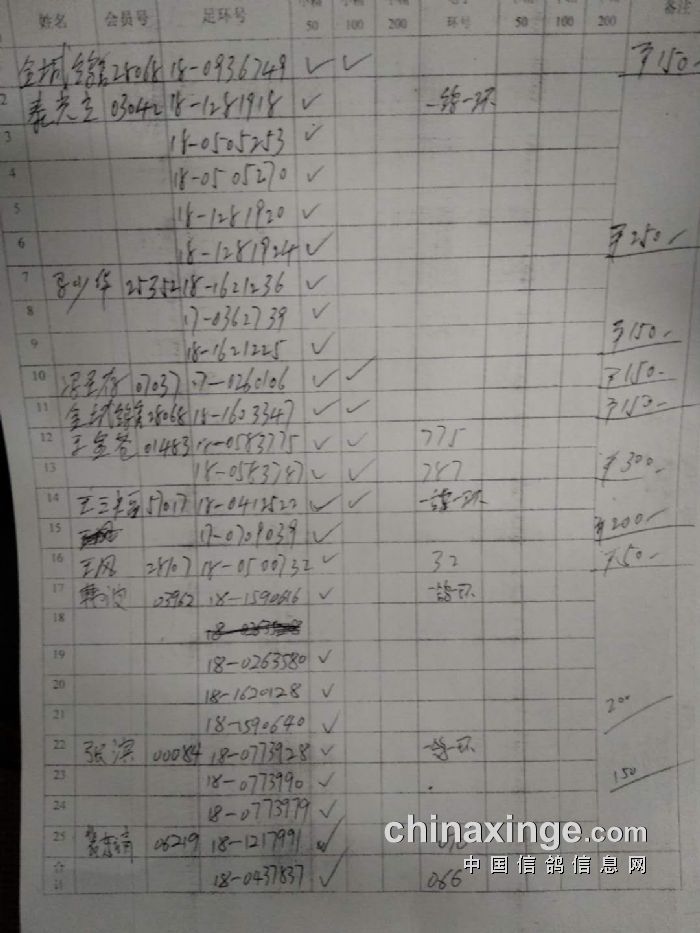 姓名 会员号 足环号 50 100 200 环号 50 100 200 备注
28068 18-0936749 ✓ ✓ ¥150-
2 03042 18-1281918 ✓ 一鸽一环
3 18-0505253 ✓
4 18-0505270 ✓
5 18-1281920 ✓
6 18-1281924 ✓ ¥250-
7 25352 18-1621236 ✓
8 17-0362739 ✓
9 18-1621225 ✓ ¥150-
10 07037 17-0260106 ✓ ✓ ¥150-
11 28068 18-1603347 ✓ ✓ ¥150-
12 01483 18-0583775 ✓ ✓ 775
13 18-0583787 ✓ ✓ 787 ¥300-
14 57017 18-0412522 ✓ ✓ 一鸽一环
15 17-0709039 ✓ ¥200-
16 王凤 28107 18-0500732 ✓ 32 ¥50-
17 03962 18-1590646 ✓ 一鸽一环
18
19 18-0263580 ✓
20 18-1620128 ✓
21 18-1590640 ✓ 200
22 张滨 00084 18-0773928 ✓ 一鸽一环
23 18-0773990 ✓ 150
24 18-0773979 ✓
25 06219 18-1217991 ✓
合计 18-0437837 ✓ 066
chinaxinge.com
中国信鸽信息网